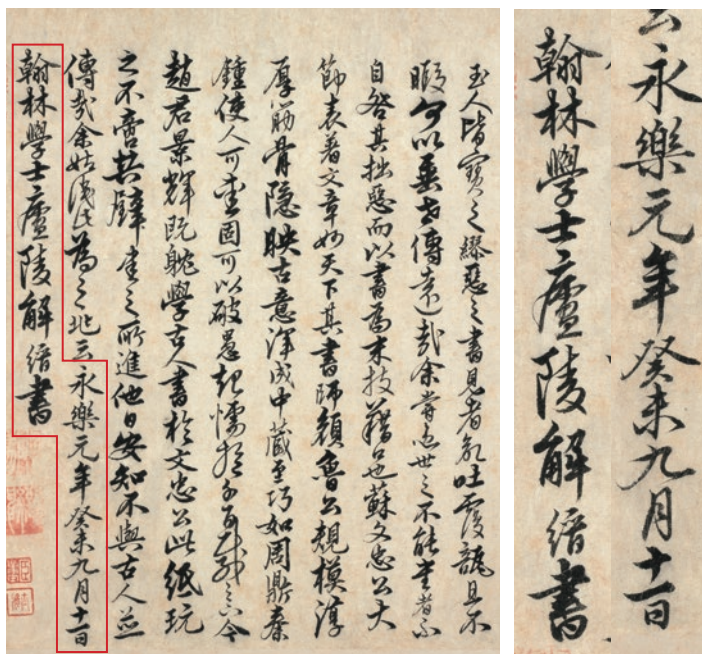 玉人皆寶之繆惡之書見者亂吐覆瓿且不
暇何以垂世傳遠哉余嘗患世之不能書者不
自咎其拙惡而以書為末技藉口也蘇文忠公大
節表著文章妙天下其書師顏魯公規模淳
厚筋骨隱映古意渾成中藏至巧如周鼎秦
鍾使人可重固可以破愚起懦於千百載之下今
趙君景輝既躭學古人書於文忠公此紙玩
之不啻共璧重之所進他日安知不與古人並
傳哉余姑識此為之兆云永樂元年癸未九月十一日
翰林學士廬陵解縉書
云永樂元年癸未九月十一日
翰林學士廬陵解縉書